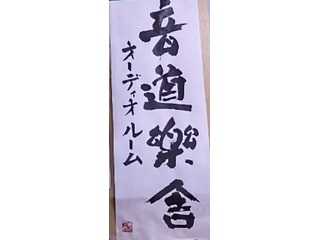 音道樂舎
オーディオルーム